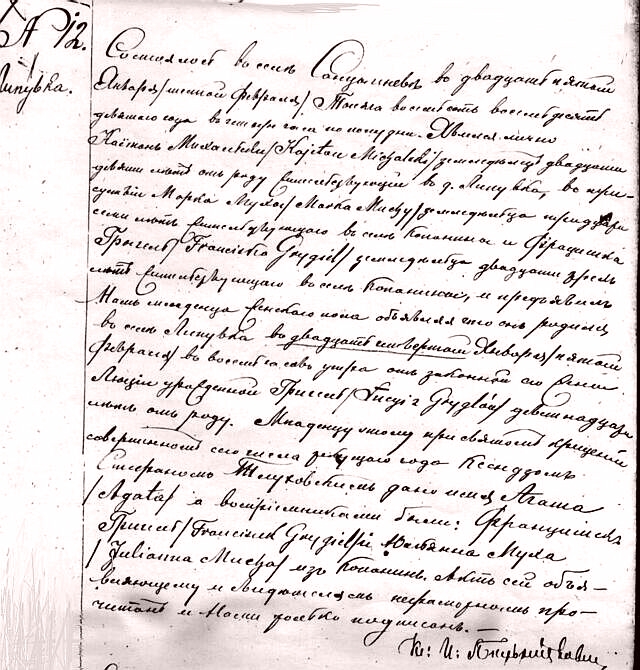 N 12.
Липувка.
Состоялось въ селѣ въ двадцать пятый
Января /шестой Февраля/ Тысяча восемьсотъ восемьдесятъ
девятаго года въ четыре часа по полудни. Явился лично
Каетанъ Михальски /Kajetan Michalski/ земледѣлецъ двадцати
лѣтъ отъ роду жительствующій въ д. Липувка, въ при-
сутствіи Марка Мухи /Marka Muchy/ земледѣльца тридцати
семи лѣтъ жительствующаго въ селѣ Копанина и Францишка
Грыгель /Franciszka Grygiel/ земледѣльца двадцати
лѣтъ жительствующаго въ селѣ Копанинахъ, и предъявилъ
Намъ младенца Женскаго пола объявляя что онъ родился
въ селѣ Липувка въ двадцать четвертый Января /пятый
Февраля/ въ восемь часовъ утра отъ законной его Жены
Люціи урожденной Грыгель /Łucyi z Grygłów/ девятнадцати
лѣтъ отъ роду. Младенцу этому при святомъ крещеніи
совершенномъ сего числа текущаго года Ксендзомъ
Стефаномъ дано имя Агата
/Agata/ а воспріемниками были: Францишекъ
Грыгель /Franciszek Grygiel/ и Юліанна Муха
/Julianna Mucha/ изъ Копанинъ. Актъ сей объя-
вляющему и свидѣтелямъ неграмотнымъ про-
читанъ и Нами только подписанъ.
Кс: И: